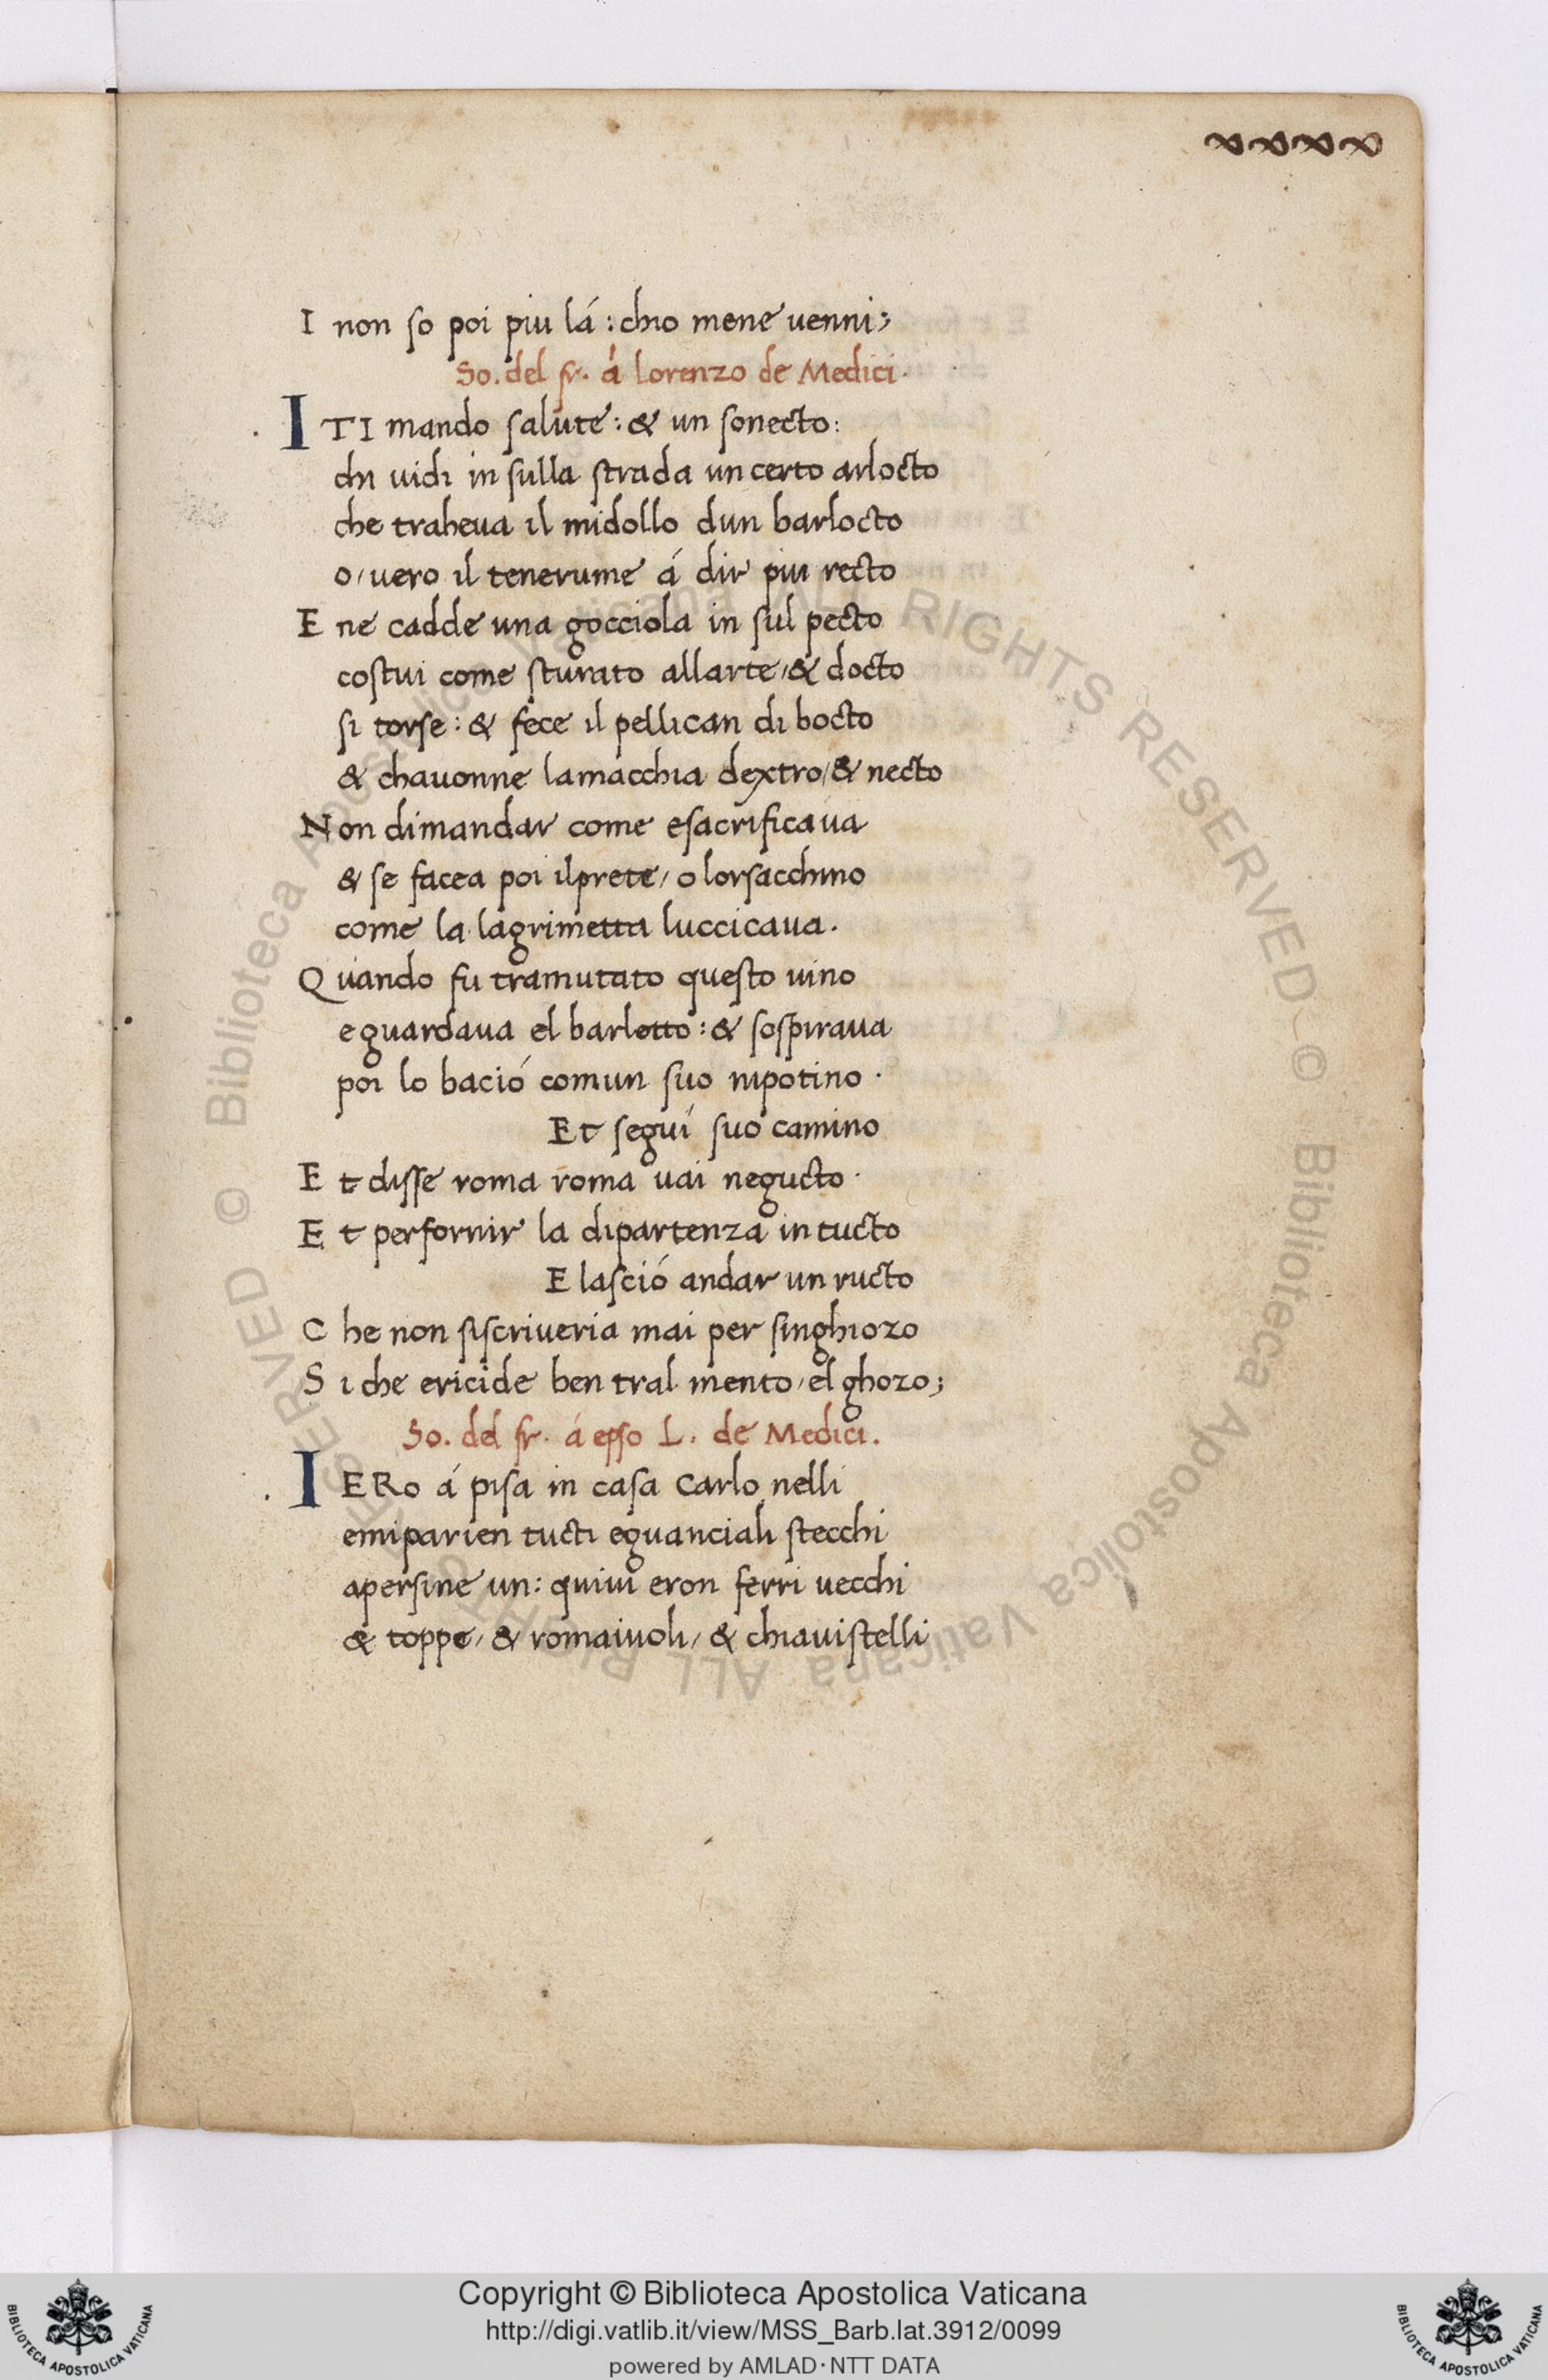 xxxx
I non so poi piu lá : chio mene uenni;
So. del fr. á lorenzo de Medici.
ITI mando salute : & un sonecto:
chi uidi in sulla strada un certo arlocto
che traheua il midollo dun barlocto
o/uero il tenerume á dir piu recto
E ne cadde una gocciola in sul pecto
costui come sturato allarte/& docto
si torse : & fece il pellican di bocto
& chauonne lamacchia dextro/& necto
Non dimandar come esacrificaua
& se facea poi ilprete/ o lorsacchino
come la lagrimetta luccicaua.
Quando fu tramutato questo uino
e guardaua el barlotto : & sospiraua
poi lo bació comun suo nipotino .
Et seguí suo camino
Et disse roma roma uai negucto .
Et perfornir la dipartenza in tucto
E lasció andar un ructo
Che non siscriueria mai per singhiozo
Si che ericide ben tral mento/el ghozo;
So. del fr. á epso L. de Medici.
IERo á pisa in casa Carlo nelli
emiparien tucti eguanciali stecchi
apersine un : quiui eron ferri uecchi
& toppe/ & romaiuoli/ & chiauistelli
© Biblioteca Apostolica Vaticana ALL RIGHTS RESERVED © Biblioteca Apostolica Vaticana ALL RIGHTS RESERVED
Copyright © Biblioteca Apostolica Vaticana
http://digi.vatlib.it/view/MSS_Barb.lat.3912/0099
powered by AMLAD·NTT DATA
BIBLIOTECA APOSTOLICA VATICANA
BIBLIOTECA APOSTOLICA VATICANA